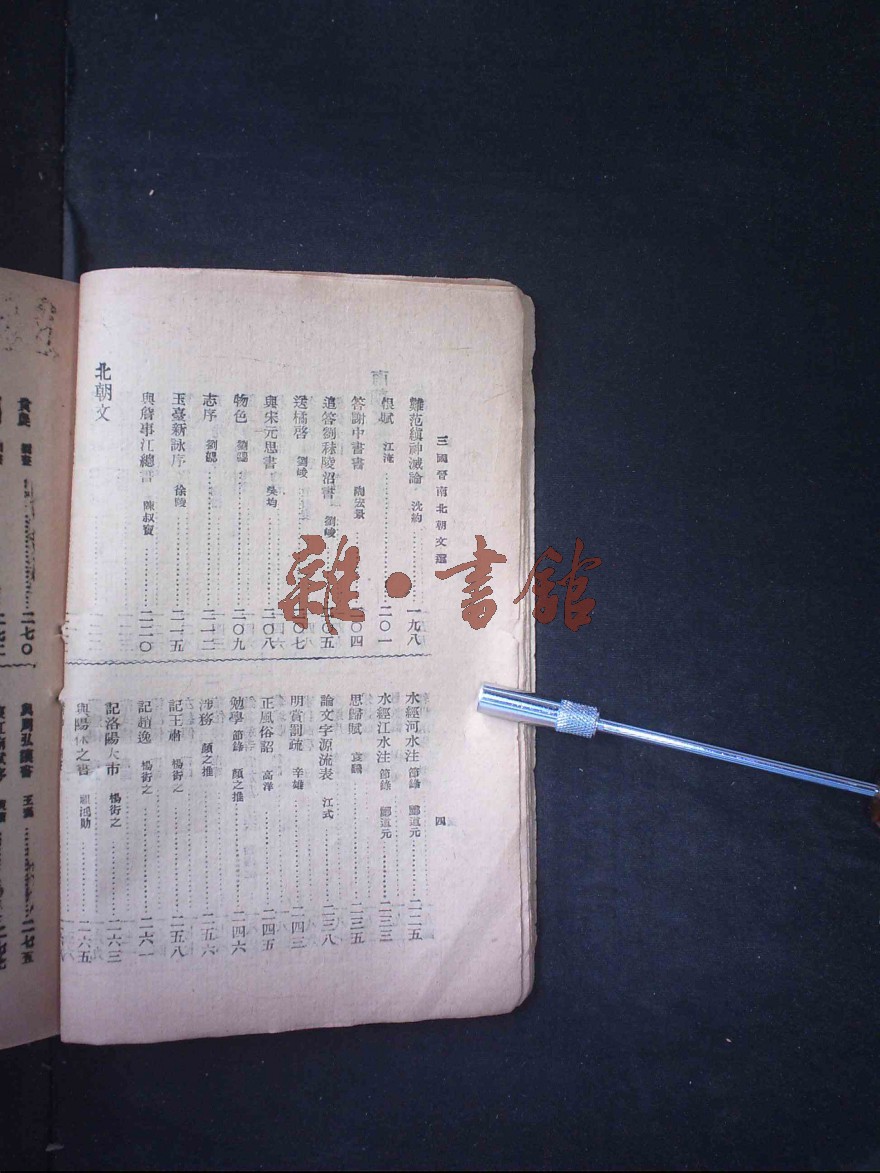 三國晉南北朝文選
四
難范縝神滅論 沈約 一九八
恨賦 江淹 二〇一
答謝中書書 陶宏景 二〇四
追答劉秣陵沼書 劉峻 二〇五
送橘啓 劉峻 二〇七
與宋元思書 吳均 二〇八
物色 劉勰 二〇九
志序 劉勰 二一二
玉臺新詠序 徐陵 二一五
與詹事江總書 陳叔寶 二二〇
北朝文
水經河水注 節錄 酈道元 二二五
水經江水注 節錄 酈道元 二三三
思歸賦 袁翻 二三五
論文字源流表 江式 二三八
明賞罰疏 辛雄 二四三
正風俗詔 高洋 二四五
勉學 節錄 顏之推 二四六
涉務 顏之推 二五六
記王肅 楊衒之 二五八
記趙逸 楊衒之 二六一
記洛陽大市 楊衒之 二六三
與陽休之書 祖鴻勛 二六五
二七〇
與周弘讓書 王褒 二七五
雜·書館